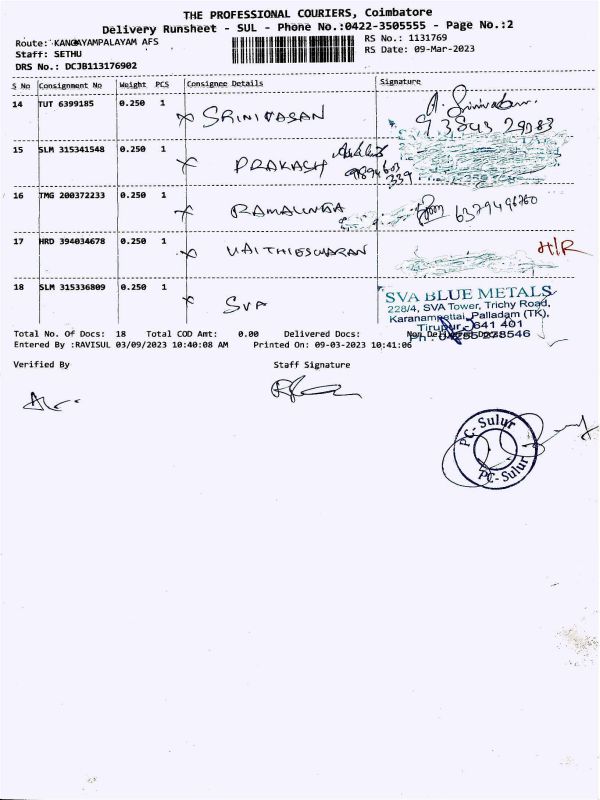 THE PROFESSIONAL COURIERS, Coimbatore
Delivery Runsheet - SUL - Phone No.:0422-3505555 - Page No.:2
Route: KANGAYAMPALAYAM AFS
RS No.: 1131769
Staff: SETHU
RS Date: 09-Mar-2023
DRS No.: DCJB113176902
S No Consignment No Weight PCS Consignee Details Signature
14 TUT 6399185 0.250 1 SRINIVASAN A. Srinivasan.
15 SLM 315341548 0.250 1 PRAKASH
16 TMG 200372233 0.250 1 RAMALINGA
17 HRD 394034678 0.250 1 VAITHIESWARAN H/R
18 SLM 315336809 0.250 1 SVA
SVA BLUE METALS
228/4, SVA Tower, Trichy Road,
Karanampettai, Palladam (TK),
Tirupur - 641 401
Total No. Of Docs: 18 Total COD Amt: 0.00 Delivered Docs:
Entered By :RAVISUL 03/09/2023 10:40:08 AM Printed On: 09-03-2023 10:41:06
Verified By Staff Signature
PC-Sulur
PC-Sulur